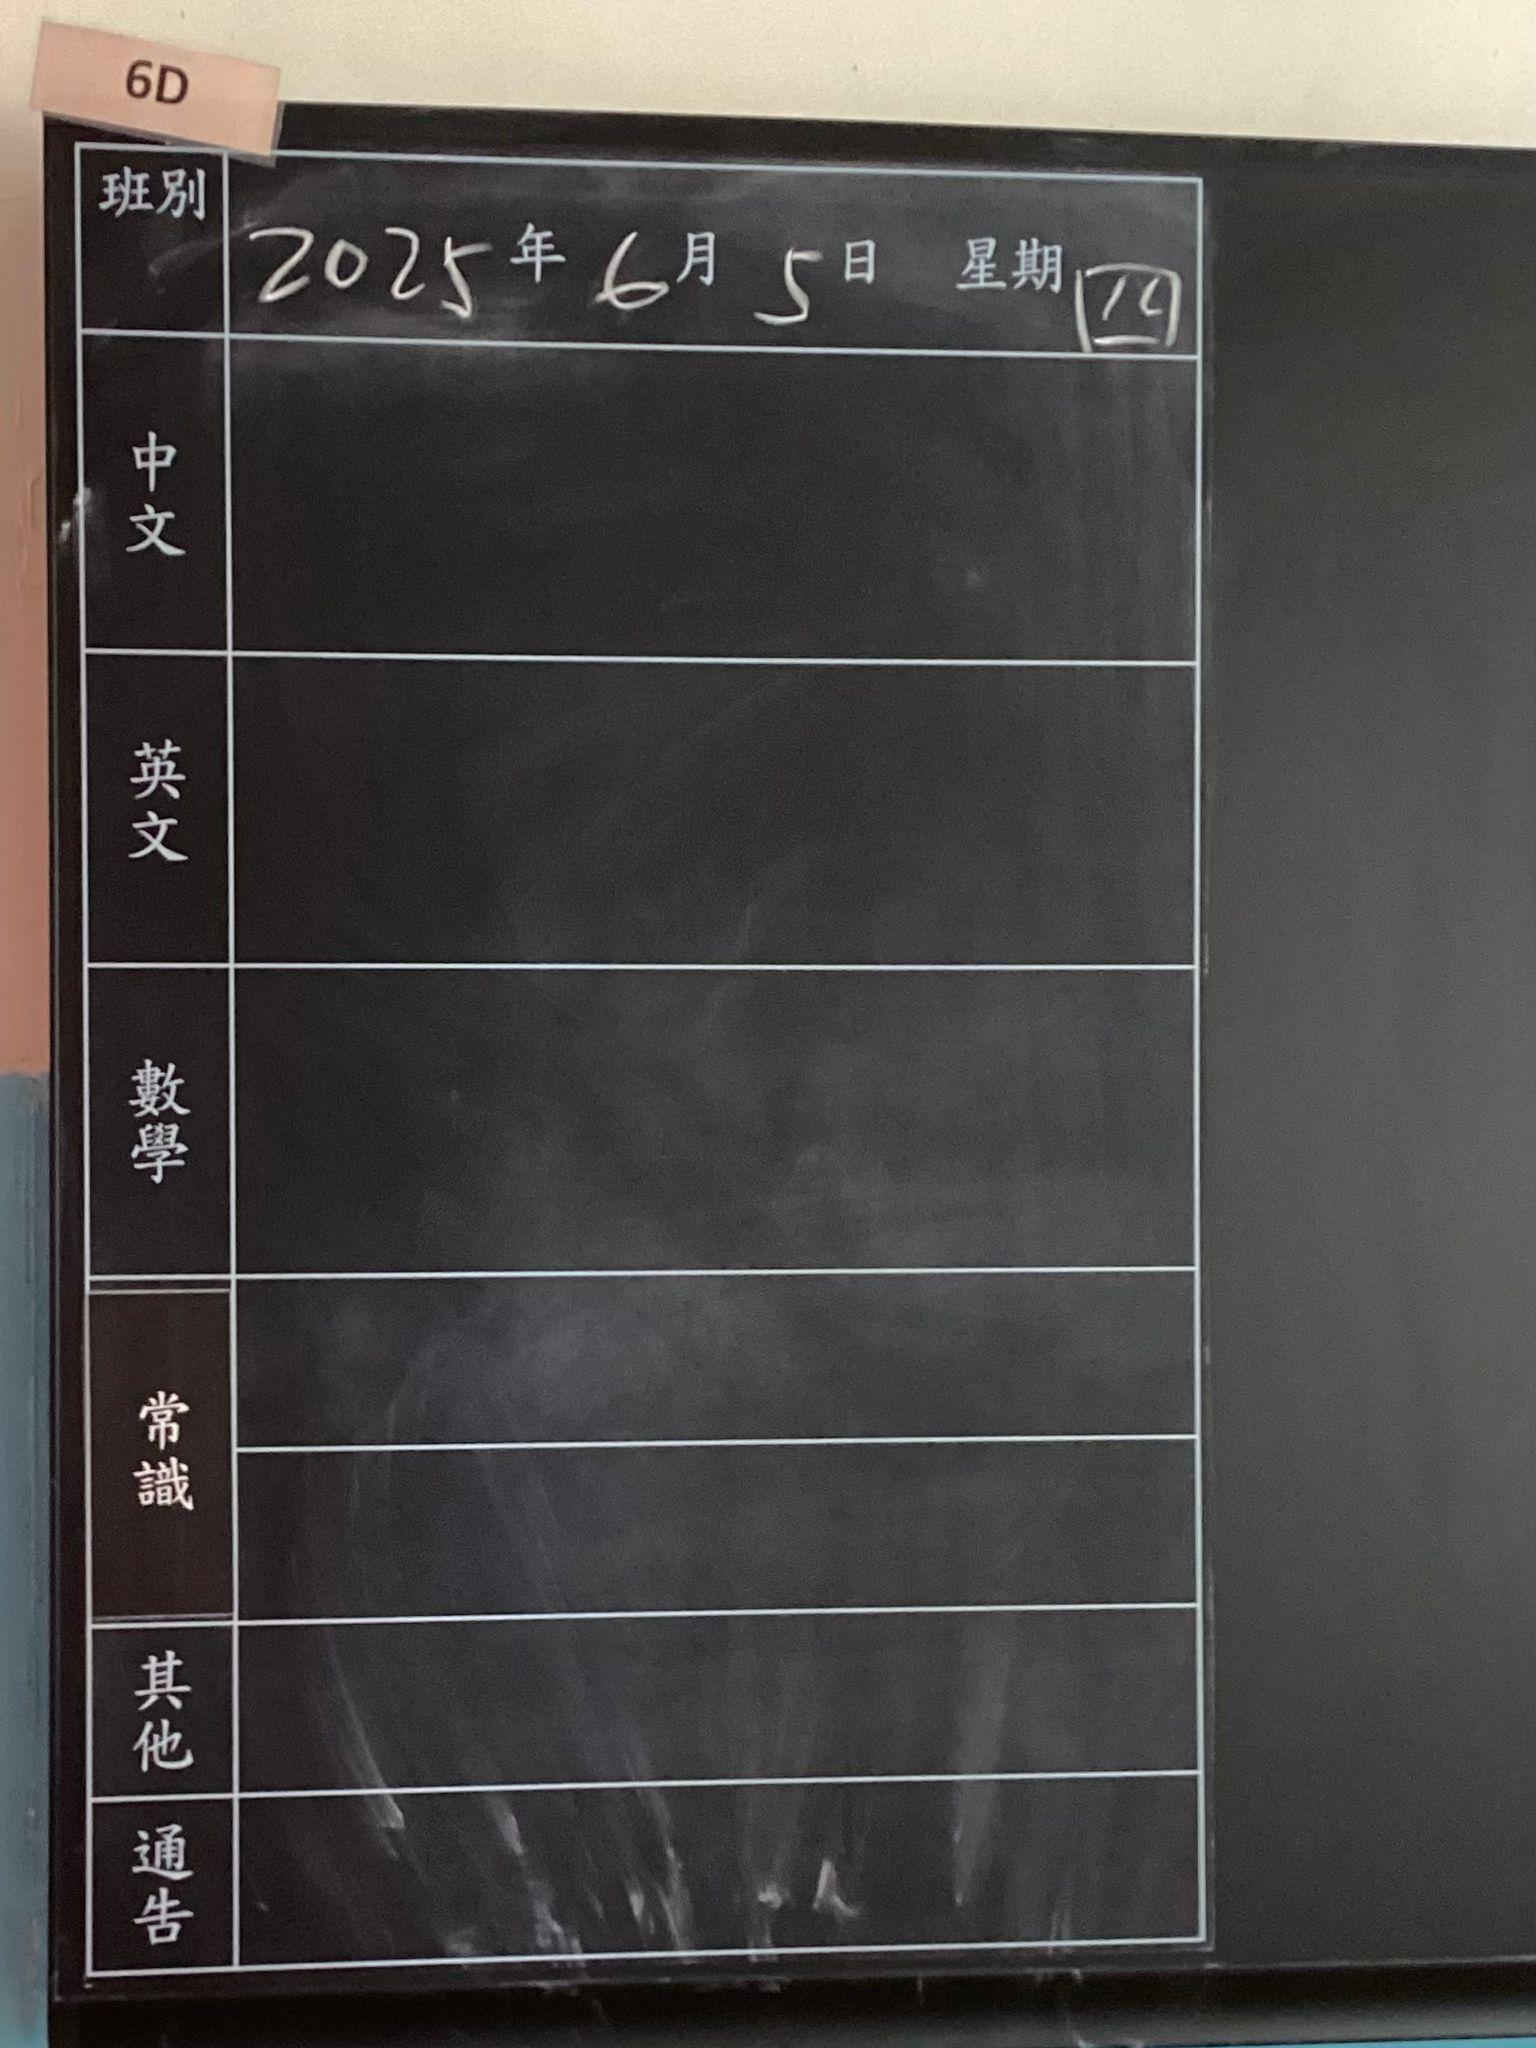 6D
班別
2025年 6月 5日 星期四
中文
英文
數學
常識
其他
通告